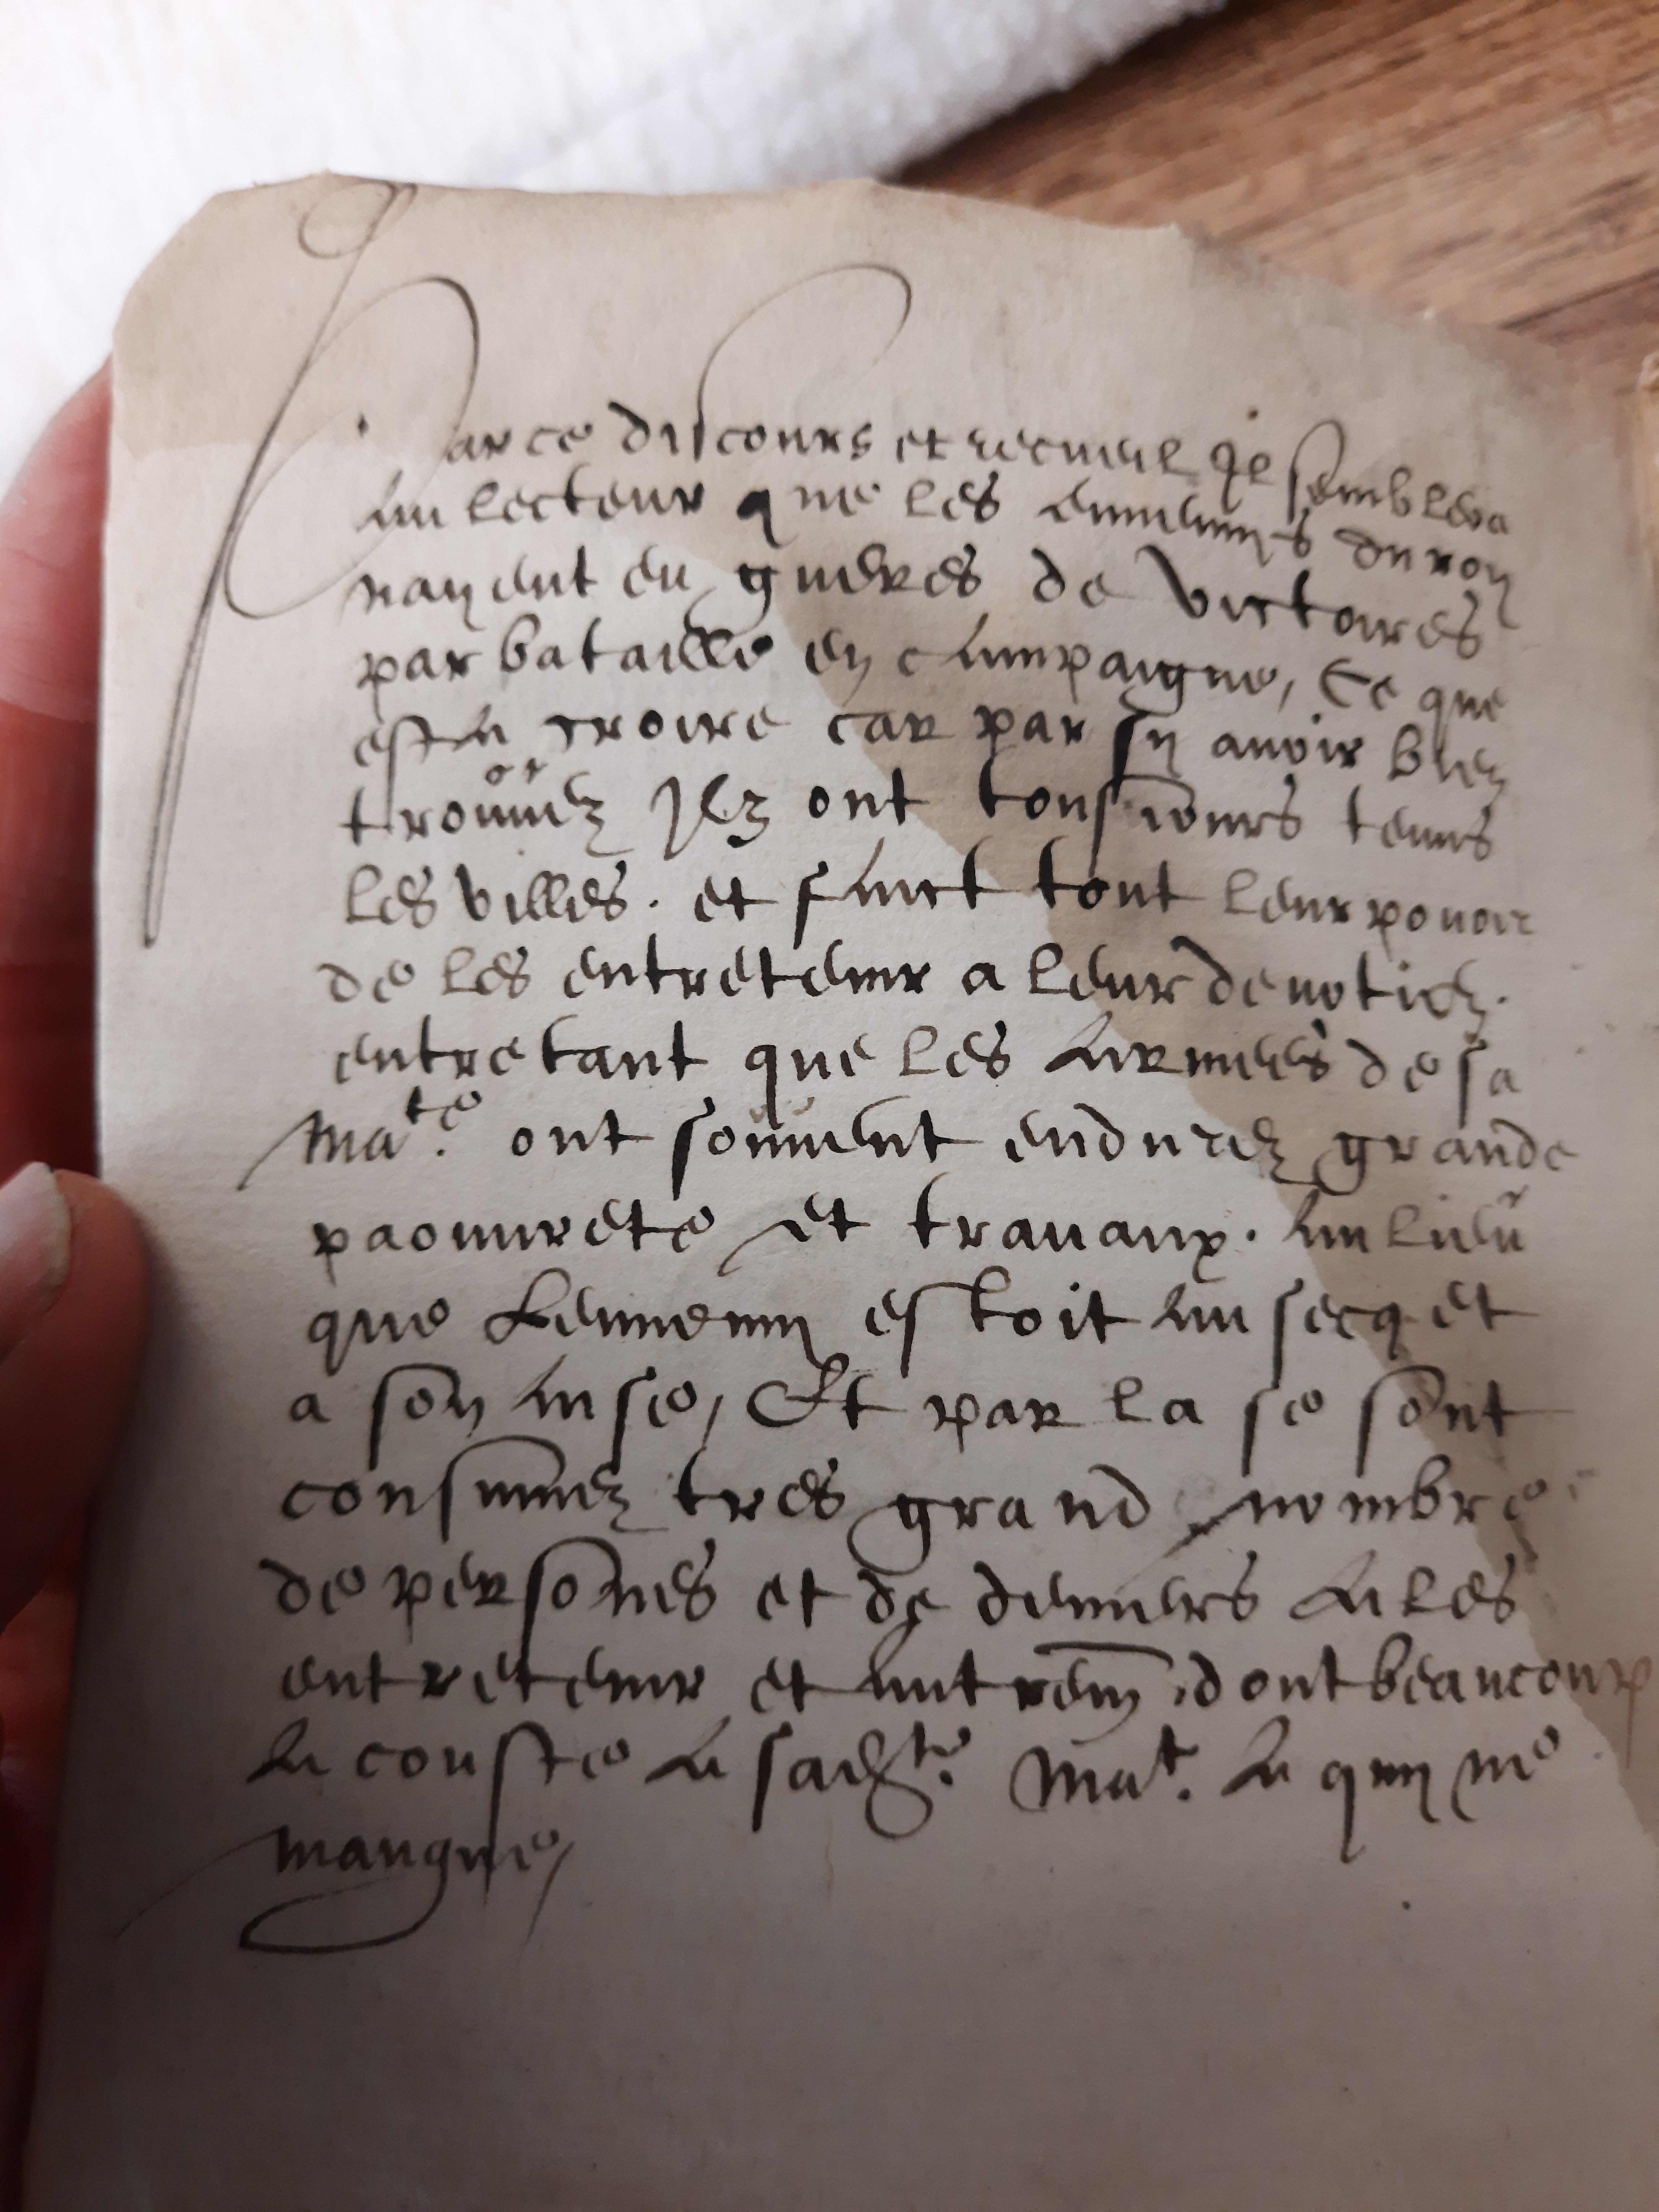 Par ce discours et recueil Il semblera
Au lecteur que les ennemys du roy
nayent eu gueres de victoires
par bataille en campaigne, Ce que
est a croire car par sy avoir bien
trouvez Ilz ont tousiours tenus
les villes. et faict tout leur pouoir
de les entretenir a leur devotion.
entretant que les Armees de sa
Mate. ont souvent endurez grande
paouvrete et travaux. Au lieu
que Lennemy estoit au secq et
a son aise, Et par la se sont
consumez tres grand nombre
de personnes et de deniers A les
entretenir et autrem dont beaucoup
A couste A sadte. Mat. A quy ne
mangue,